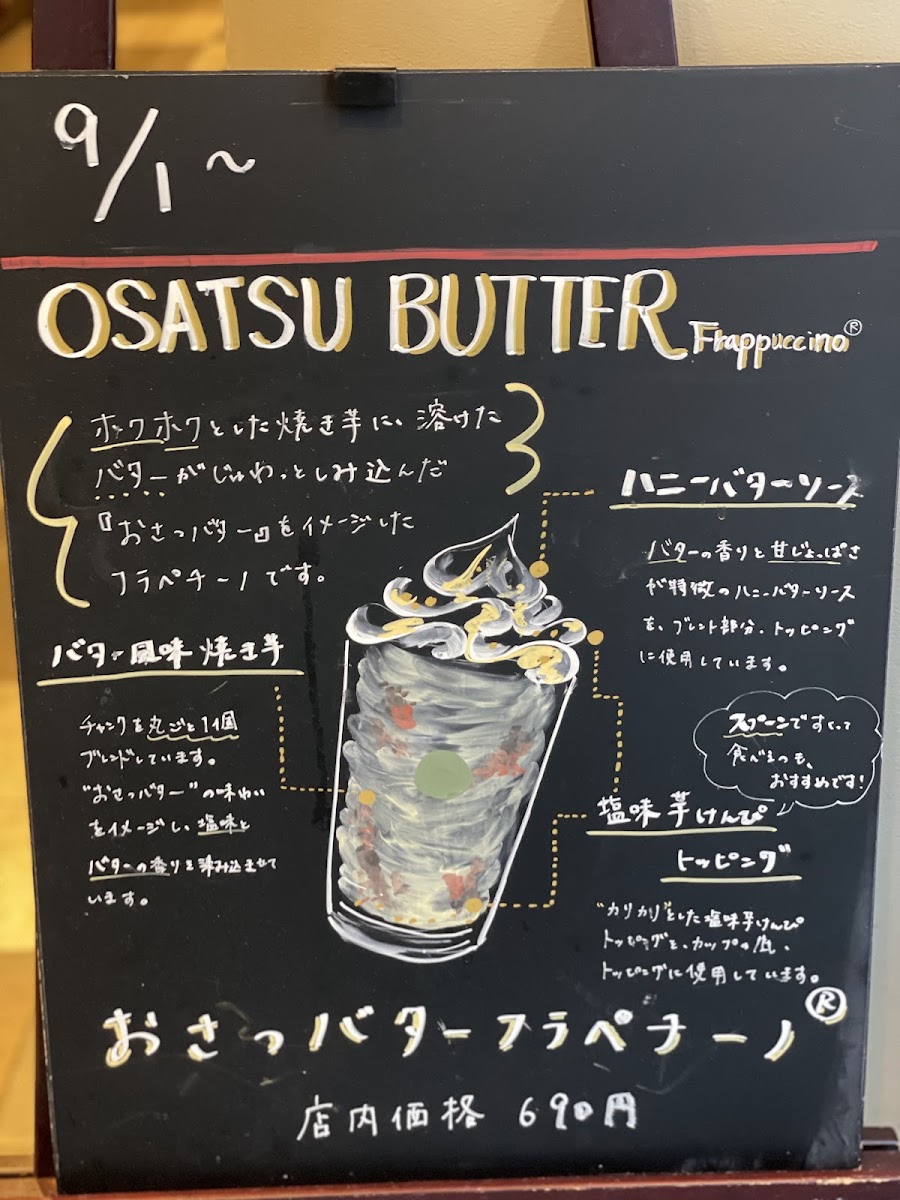 9/1～
OSATSU BUTTER Frappuccino®
ホックホクとした焼き芋に、溶けた
バターがじゅわっとしみ込んだ
『おさつバター』をイメージした
フラペチーノです。
ハニーバターソース
バターの香りと甘じょっぱさ
が特徴のハニーバターソース
を、ブレンド部分、トッピング
に使用しています。
バター風味焼き芋
チャンクを丸ごと1個
ブレンドしています。
"おさつバター"の味わい
をイメージし、塩味と
バターの香りを染み込ませて
います。
スプーンですくって
食べるのも、
おすすめです!
塩味芋けんぴ
トッピング
"カリカリ"とした塩味芋けんぴ
トッピングを、カップの底、
トッピングに使用しています。
おさつバターフラペチーノ®
店内価格 690円